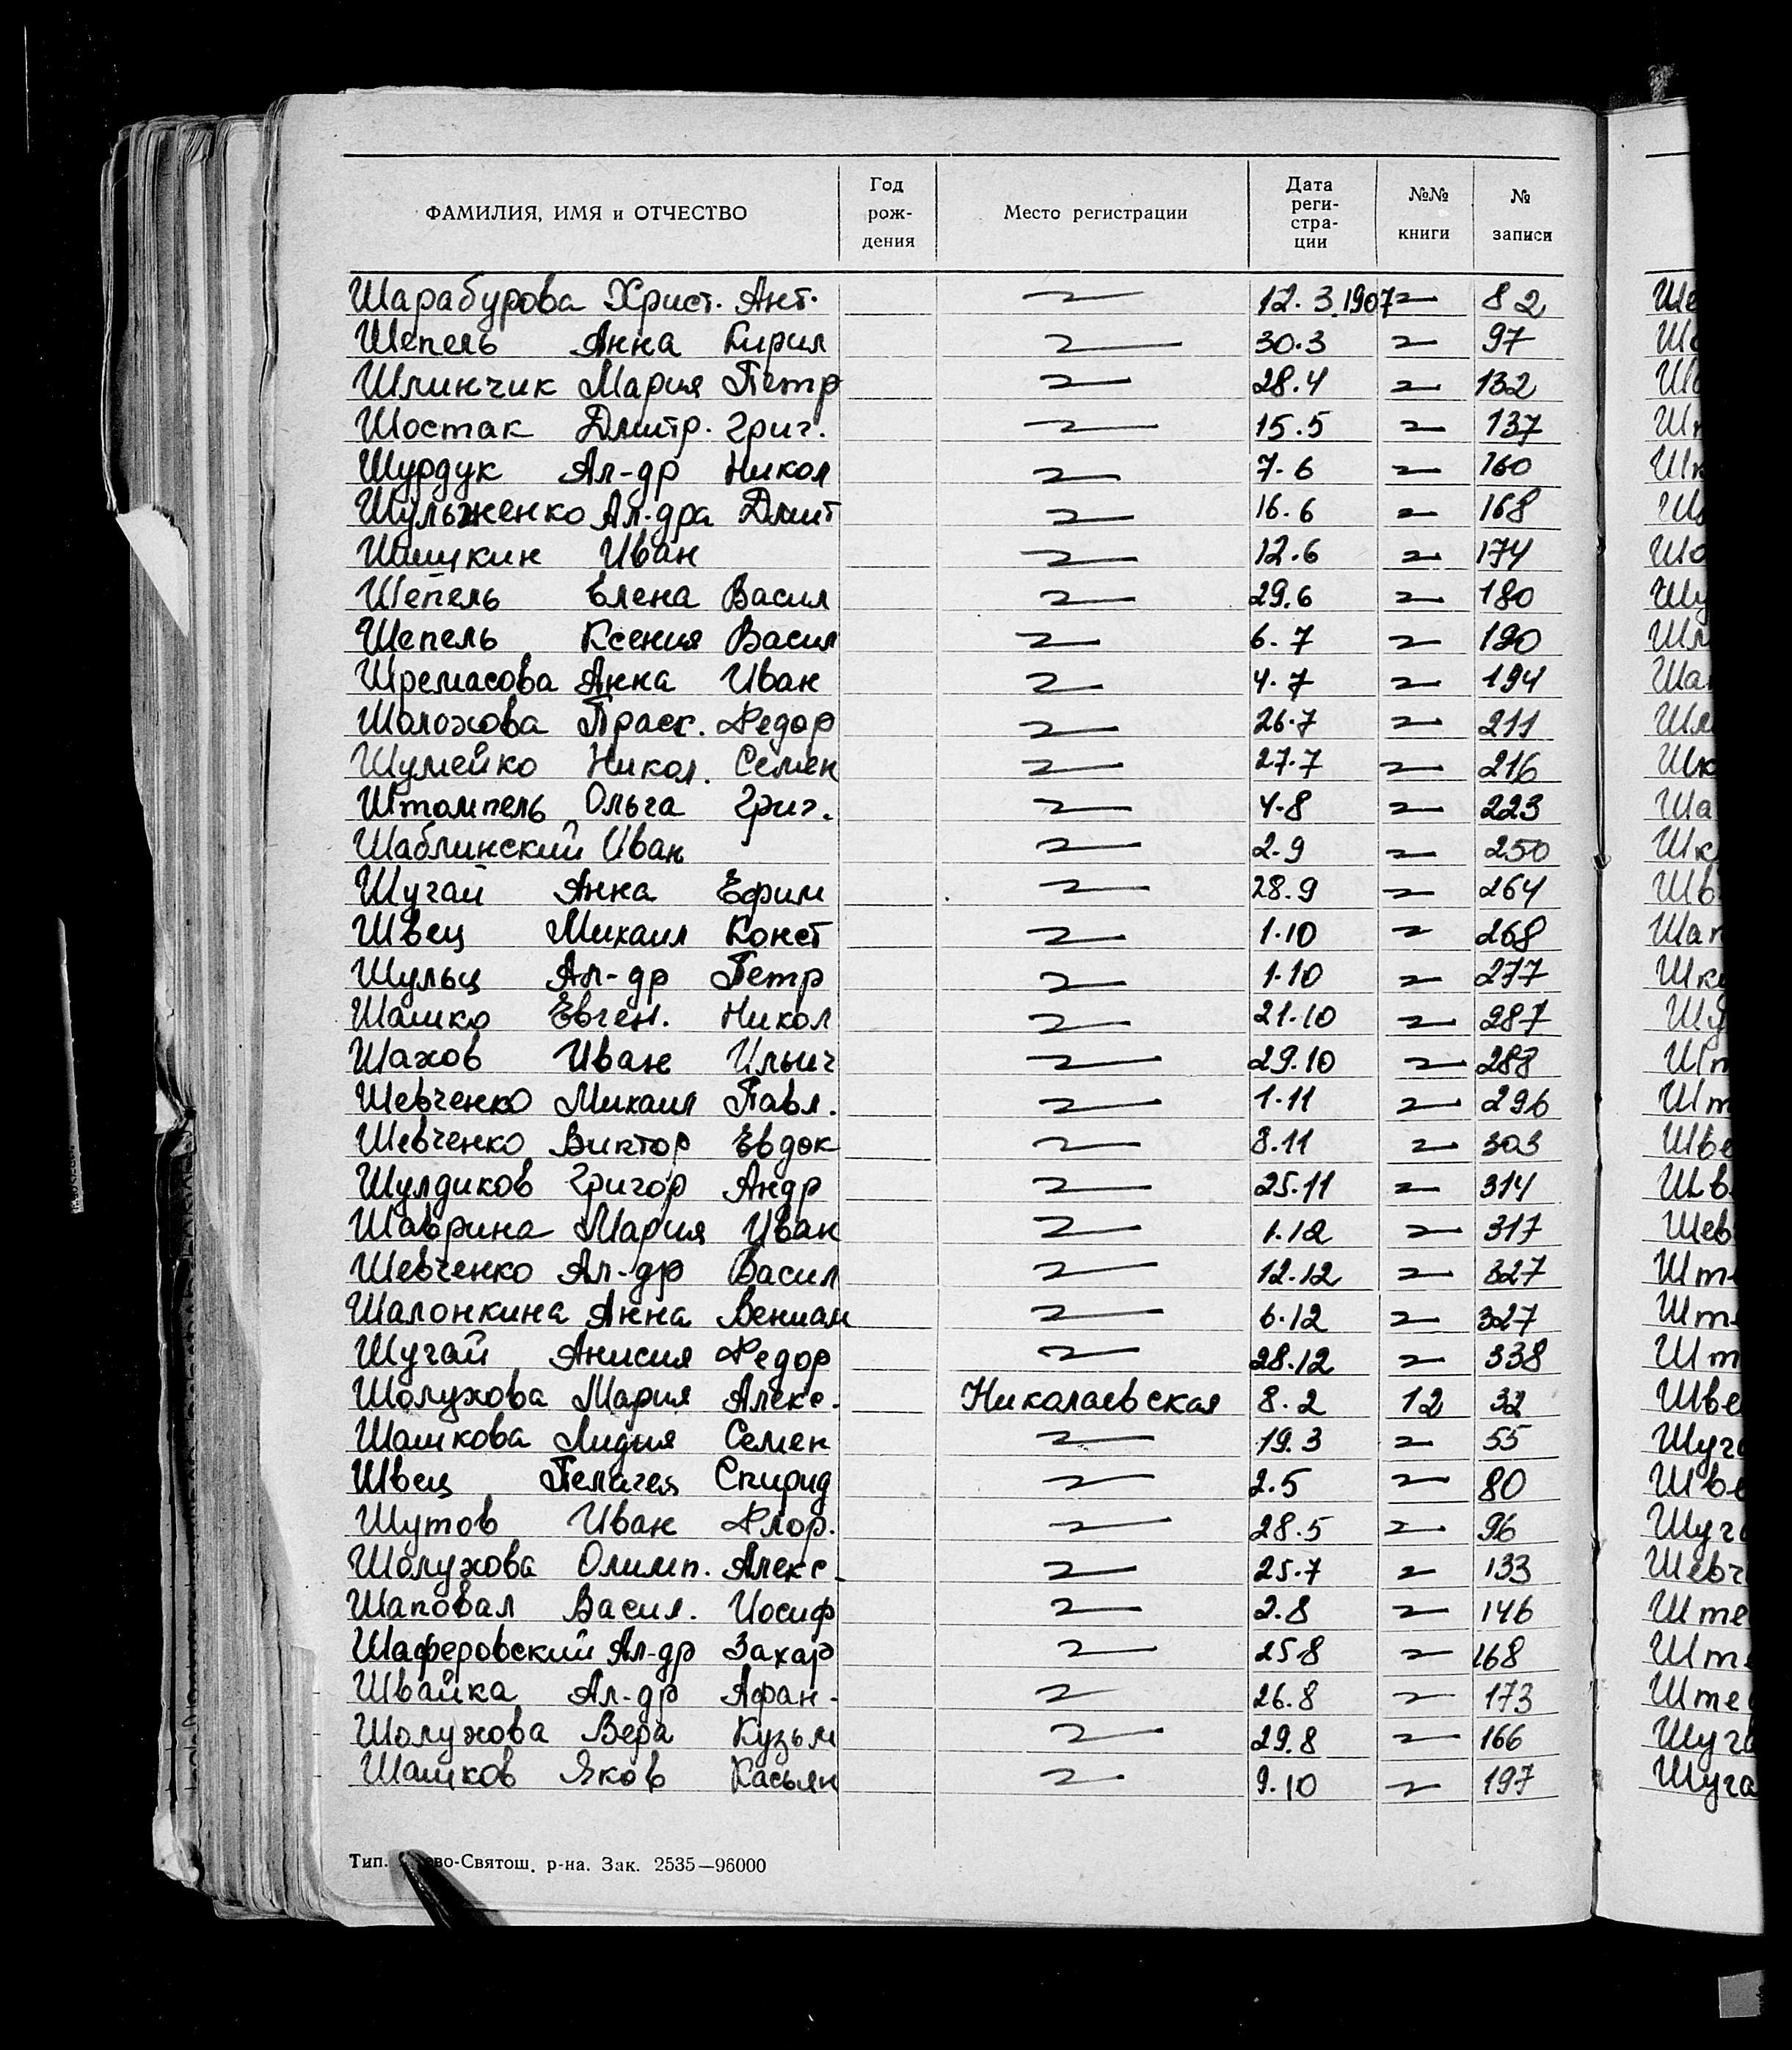 ФАМИЛИЯ, ИМЯ и ОТЧЕСТВО Год рож-дения Место регистрации Дата реги-стра-ции №№ книги № записи
Шарабурова Христ. Ант. 12.3.1907 82
Шепель Анна Кирил 30.3 97
Шлинчик Мария Петр 28.4 132
Шостак Дмитр. Григ. 15.5 137
Шурдук Ал-др Никол 7.6 160
Шульженко Ал-дра Дмит 16.6 168
Шишкин Иван 12.6 174
Шепель Елена Васил 29.6 180
Шепель Ксения Васил 6.7 190
Шремасова Анна Иван 4.7 194
Шолохова Праск. Федор 26.7 211
Шумейко Никол. Семен 27.7 216
Штомпель Ольга Григ. 4.8 223
Шаблинский Иван 2.9 250
Шугай Анна Ефим 28.9 264
Швец Михаил Конст 1.10 268
Шульц Ал-др Петр 1.10 277
Шашко Евген. Никол 21.10 287
Шахов Иван Ильич 29.10 288
Шевченко Михаил Павл. 1.11 296
Шевченко Виктор Евдок 8.11 303
Шулдиков Григор Андр 25.11 314
Шаврина Мария Иван 1.12 317
Шевченко Ал-др Васил 12.12 327
Шалонкина Анна Вениам 6.12 327
Шугай Анисия Федор 28.12 338
Шолухова Мария Алекс. Николаевская 8.2 12 32
Шашкова Лидия Семен 19.3 55
Швец Пелагея Спирид 2.5 80
Шутов Иван Флор. 28.5 96
Шолухова Олимп. Алекс. 25.7 133
Шаповал Васил. Иосиф 2.8 146
Шаферовский Ал-др Захар 25.8 168
Швайка Ал-др Афан. 26.8 173
Шолухова Вера Кузьм 29.8 166
Шашков Яков Касьян 9.10 197
Тип. р-на. Зак. 2535—96000